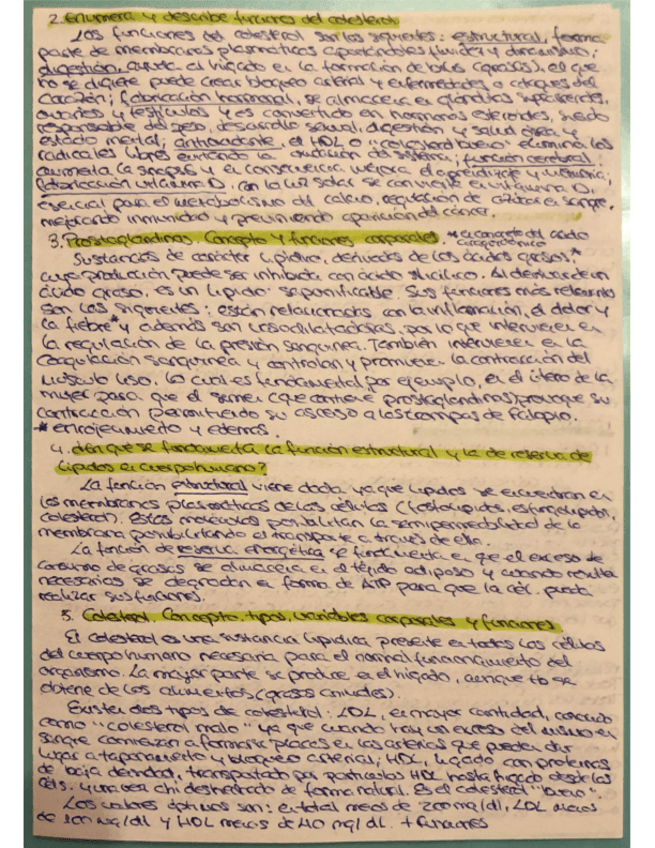 2. Enumera y describe funciones del colesterol.
Las funciones del colesterol son las siguientes: estructural, forma
parte de membranas plasmáticas aportándoles fluidez y dinamismo;
digestión, ayuda al hígado en la formación de bilis (grasas), el que
no se digiere puede crear bloqueo arterial y enfermedades o ataques del
corazón; fabricación hormonal, se almacena en glándulas suprarrenales,
ovarios y testículos y es convertido en hormonas esteroides, siendo
responsable del peso, desarrollo sexual, digestión y salud ósea y
estado mental; antioxidante, el HDL o "colesterol bueno" elimina los
radicales libres evitando la oxidación del sistema; función cerebral,
aumenta la sinapsis y en consecuencia mejora el aprendizaje y memoria;
fabricación vitamina D, con la luz solar se convierte en vitamina D,
esencial para el metabolismo del calcio, regulación de azúcar en sangre,
mejorando inmunidad y previniendo aparición del cáncer.
3. Prostaglandinas. Concepto y funciones corporales. *en concreto del ácido
araquidónico
Sustancias de carácter lipídico, derivadas de los ácidos grasos*
cuya producción puede ser inhibida con ácido salicílico. Al derivar de un
ácido graso, es un lípido saponificable. Sus funciones más relevantes
son las siguientes: están relacionadas con la inflamación, el dolor y
la fiebre* y además son vasodilatadoras, por lo que intervienen en
la regulación de la presión sanguínea. También intervienen en la
coagulación sanguínea y controlan y promueven la contracción del
músculo liso, lo cual es fundamental, por ejemplo, en el útero de la
mujer para que el semen (que contiene prostaglandinas) provoque su
contracción permitiendo su ascenso a las trompas de Falopio.
* enrojecimiento y edemas.
4. ¿En qué se fundamenta la función estructural y la de reserva de
lípidos en cuerpo humano?
La función estructural viene dada ya que lípidos se encuentran en
las membranas plasmáticas de las células (fosfolípidos, esfingolípidos,
colesterol). Estas moléculas posibilitan la semipermeabilidad de la
membrana posibilitando el transporte a través de ella.
La función de reserva energética se fundamenta en que el exceso de
consumo de grasas se almacena en el tejido adiposo y cuando resulta
necesarias se degradan en forma de ATP para que la cél. pueda
realizar sus funciones.
5. Colesterol. Concepto, tipos, variables corporales y funciones.
El colesterol es una sustancia lipídica presente en todas las células
del cuerpo humano necesaria para el normal funcionamiento del
organismo. La mayor parte se produce en el hígado, aunque tb se
obtiene de los alimentos (grasas animales).
Existen dos tipos de colesterol: LDL, en mayor cantidad, conocido
como "colesterol malo" ya que cuando hay un exceso del mismo en
sangre comienzan a formarse placas en las arterias que pueden dar
lugar a taponamiento y bloqueo arterial; HDL, ligado con proteínas
de baja densidad, transportado por partículas HDL hasta hígado desde las
céls. y una vez ahí desechado de forma natural. Es el colesterol "bueno".
Los valores óptimos son: en total menos de 200 mg/dl, LDL menos
de 100 mg/dl y HDL menos de 40 mg/dl. + funciones